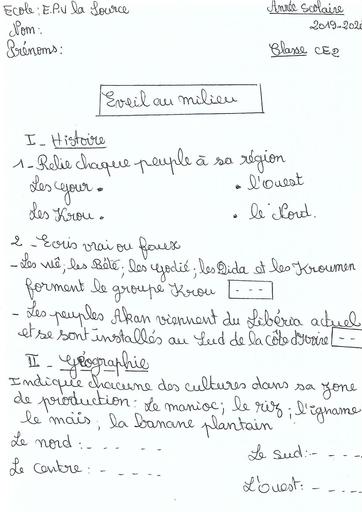 Ecole: E.P.V la Source
Année Scolaire
Nom:
2019-202
Prénoms:
Classe CE2
Eveil au milieu
I - Histoire
1 - Relie chaque peuple à sa région
Les Gour • • l'Ouest
Les Krou • • le Nord.
2 - Ecris vrai ou faux
- Les wê; les Bété; les Godié; les Dida et les Kroumen
forment le groupe Krou ---
- Les peuples Akan viennent du Libéria actuel
et se sont installés au Sud de la côte d'Ivoire ---
II - Géographie
Indique chacune des cultures dans sa zone
de production: Le manioc; le riz; l'igname
le maïs, la banane plantain
Le nord: - - - - -
Le Sud: - - - -
Le Centre: - - - - -
L'Ouest: - - - -